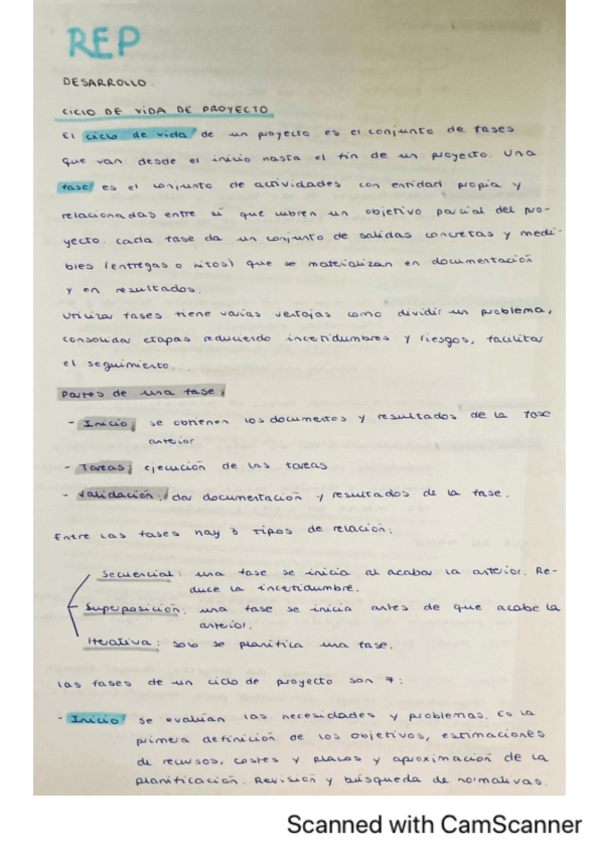 REP
DESARROLLO.
CICLO DE VIDA DE PROYECTO
El ciclo de vida de un proyecto es el conjunto de fases
que van desde el inicio hasta el fin de un proyecto. Una
fase es el conjunto de actividades con entidad propia y
relacionadas entre sí que cubren un objetivo parcial del pro-
yecto. Cada fase da un conjunto de salidas concretas y medi-
bles (entregas o hitos) que se materializan en documentación
y en resultados.
Utilizar fases tiene varias ventajas como dividir un problema,
consolidar etapas reduciendo incertidumbres y riesgos, facilitar
el seguimiento...
Partes de una fase:
- Inicio: se obtienen los documentos y resultados de la fase
anterior
- Tareas: ejecución de las tareas
- Validación: dar documentación y resultados de la fase.
Entre las fases hay 3 tipos de relación:
Secuencial: una fase se inicia al acabar la anterior. Re-
duce la incertidumbre.
Superposición: una fase se inicia antes de que acabe la
anterior.
Iterativa: solo se planifica una fase.
Las fases de un ciclo de proyecto son 7:
- Inicio: se evalúan las necesidades y problemas. Es la
primera definición de los objetivos, estimaciones
de recursos, costes y plazos y aproximación de la
planificación. Revisión y búsqueda de normativas.
Scanned with CamScanner